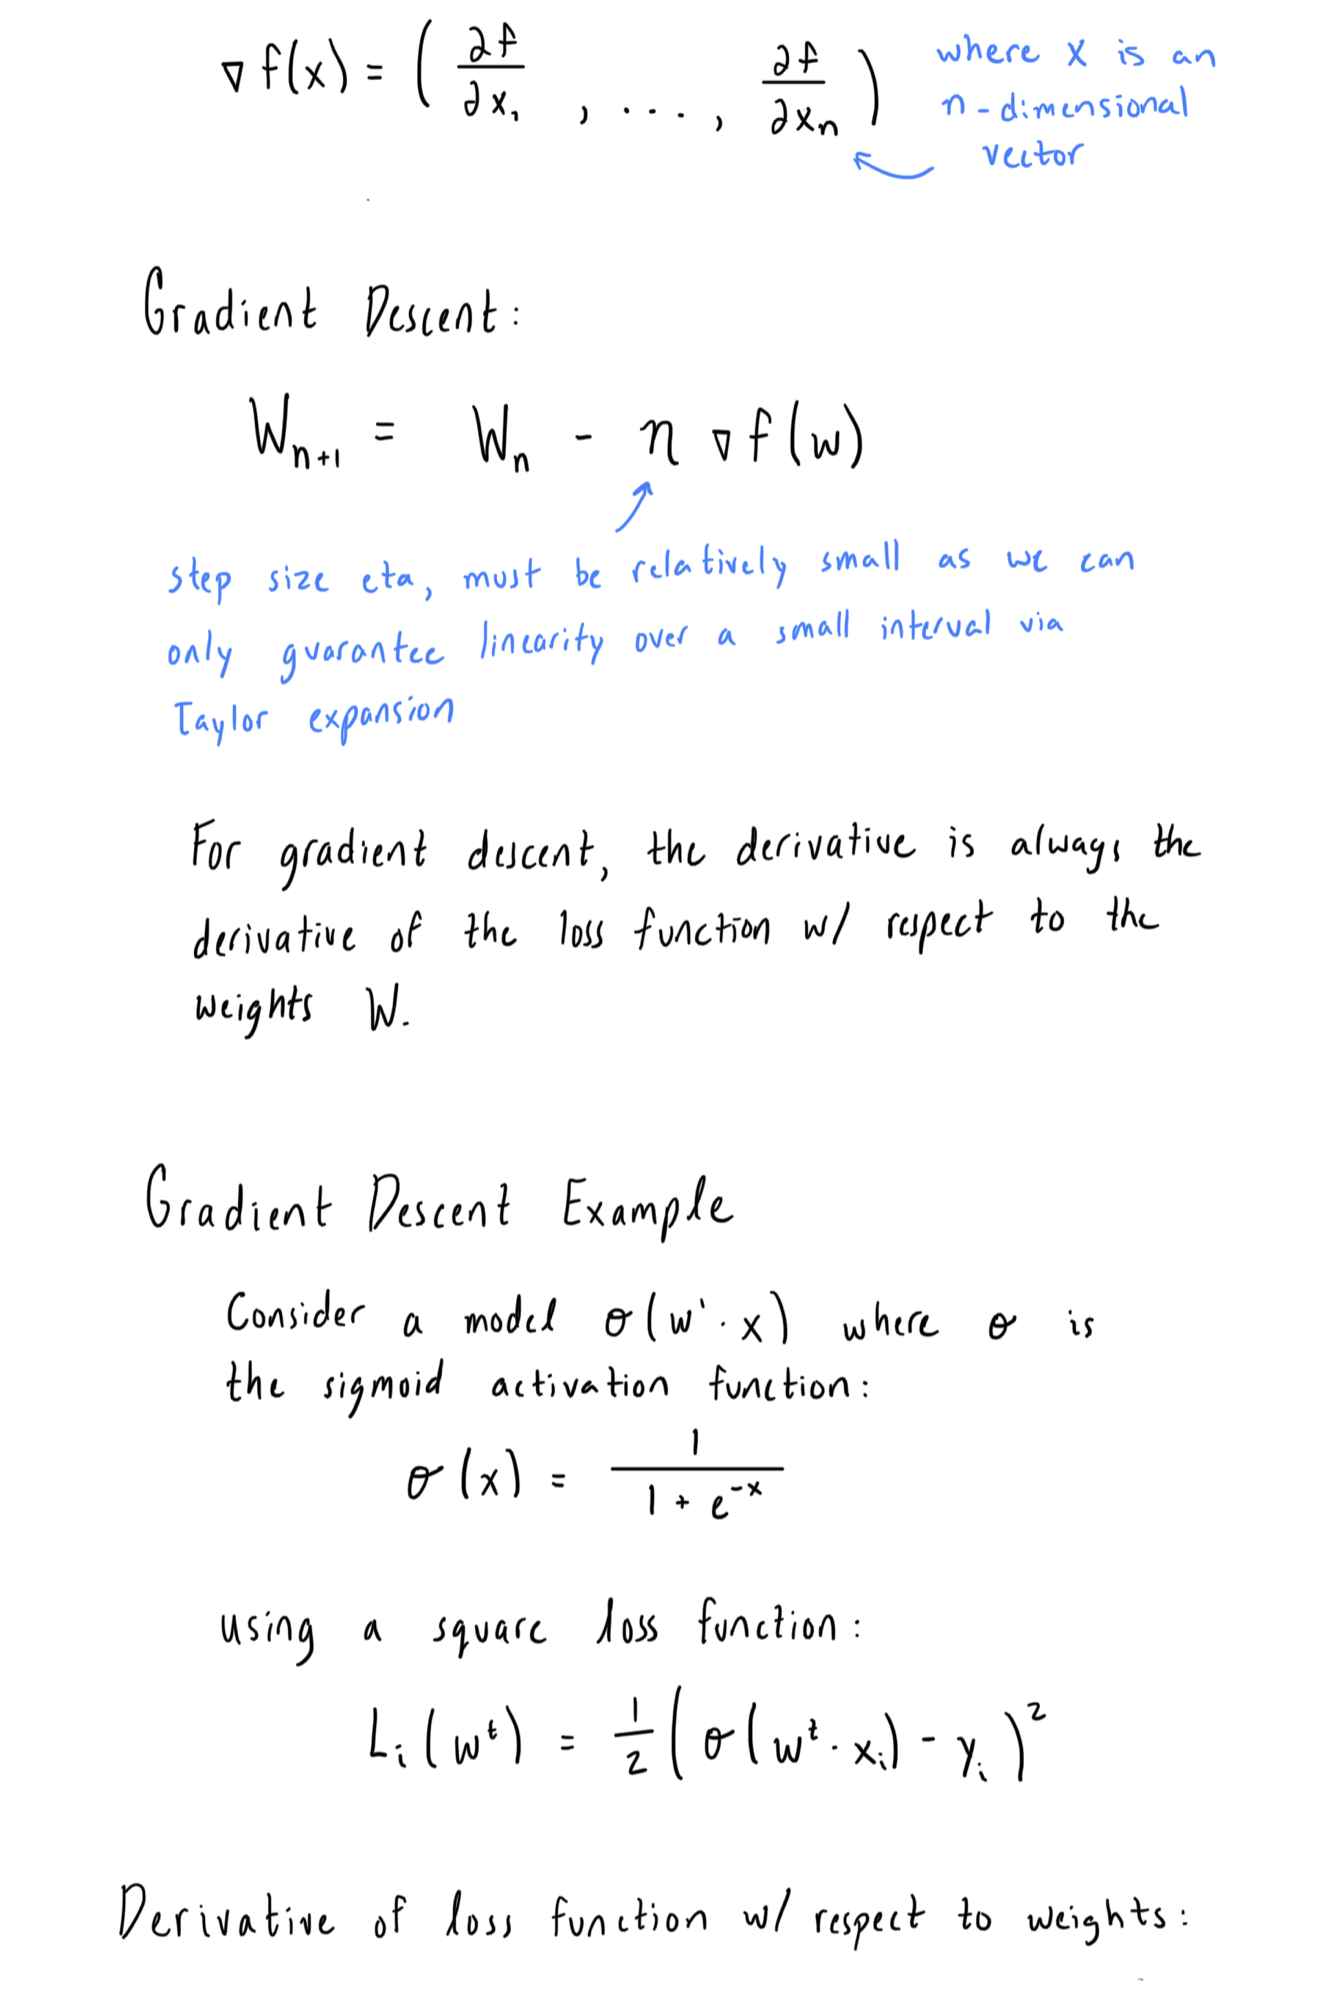 ∇ f(x) = ( ∂f/∂x₁ , ..., ∂f/∂xₙ )
where x is an
n-dimensional
vector
Gradient Descent:
Wₙ₊₁ = Wₙ - η ∇f(w)
step size eta, must be relatively small as we can
only guarantee linearity over a small interval via
Taylor expansion
For gradient descent, the derivative is always the
derivative of the loss function w/ respect to the
weights W.
Gradient Descent Example
Consider a model σ(w'·x) where σ is
the sigmoid activation function:
σ(x) = 1 / (1 + e^-x)
using a square loss function:
Lᵢ(wᵗ) = 1/2 (σ(wᵗ·xᵢ) - yᵢ)²
Derivative of loss function w/ respect to weights: